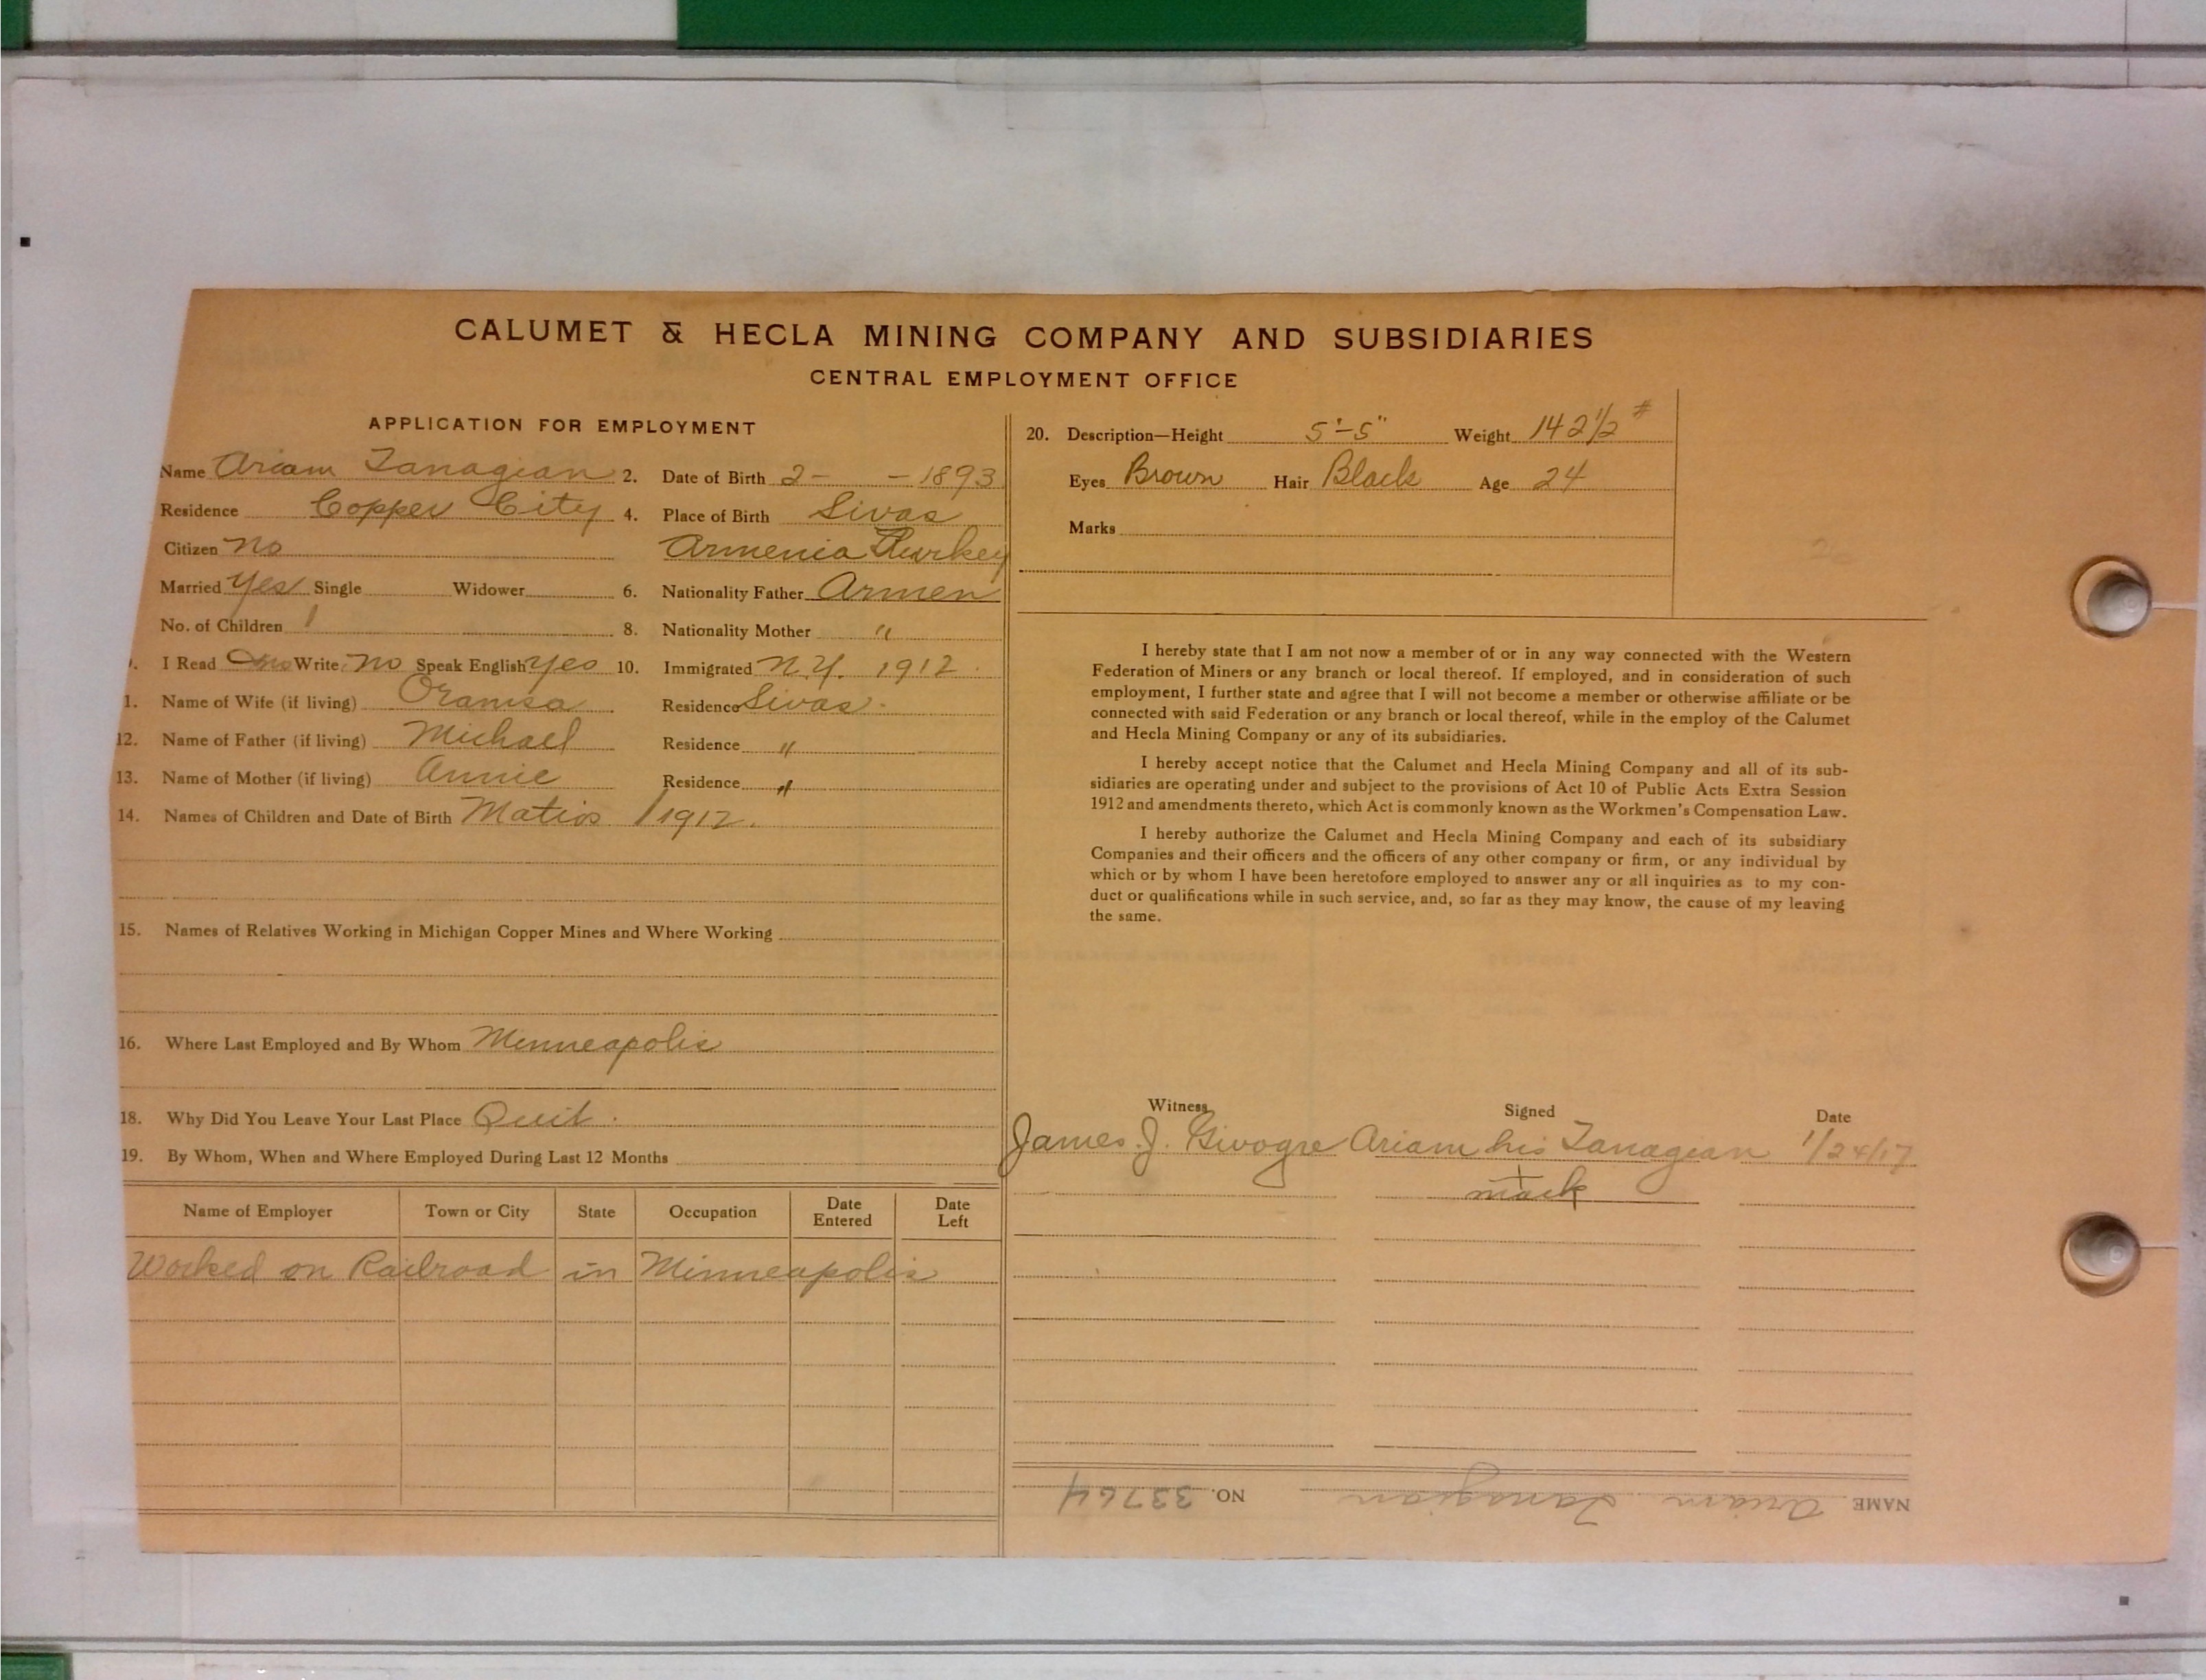 CALUMET & HECLA MINING COMPANY AND SUBSIDIARIES
CENTRAL EMPLOYMENT OFFICE
APPLICATION FOR EMPLOYMENT
Name Ariam Tanagian 2. Date of Birth 2- -1893
Residence Copper City 4. Place of Birth Sivas
Citizen no Armenia Turkey
Married Yes Single Widower 6. Nationality Father Armen
No. of Children 1 8. Nationality Mother "
I Read no Write no Speak English yes 10. Immigrated N.Y. 1912.
1. Name of Wife (if living) Oranisa Residence Sivas.
12. Name of Father (if living) Michael Residence "
13. Name of Mother (if living) Annie Residence "
14. Names of Children and Date of Birth Matios / 1912.
15. Names of Relatives Working in Michigan Copper Mines and Where Working
16. Where Last Employed and By Whom Minneapolis
18. Why Did You Leave Your Last Place Quit.
19. By Whom, When and Where Employed During Last 12 Months
Name of Employer Town or City State Occupation Date Entered Date Left
Worked on Railroad in Minneapolis
20. Description—Height 5'-5" Weight 142 1/2 #
Eyes Brown Hair Black Age 24
Marks
I hereby state that I am not now a member of or in any way connected with the Western
Federation of Miners or any branch or local thereof. If employed, and in consideration of such
employment, I further state and agree that I will not become a member or otherwise affiliate or be
connected with said Federation or any branch or local thereof, while in the employ of the Calumet
and Hecla Mining Company or any of its subsidiaries.
I hereby accept notice that the Calumet and Hecla Mining Company and all of its sub-
sidiaries are operating under and subject to the provisions of Act 10 of Public Acts Extra Session
1912 and amendments thereto, which Act is commonly known as the Workmen's Compensation Law.
I hereby authorize the Calumet and Hecla Mining Company and each of its subsidiary
Companies and their officers and the officers of any other company or firm, or any individual by
which or by whom I have been heretofore employed to answer any or all inquiries as to my con-
duct or qualifications while in such service, and, so far as they may know, the cause of my leaving
the same.
Witness Signed Date
James J. Givogre Ariam his Tanagian 1/24/17
mark
NAME Ariam Tanagian NO. 33764